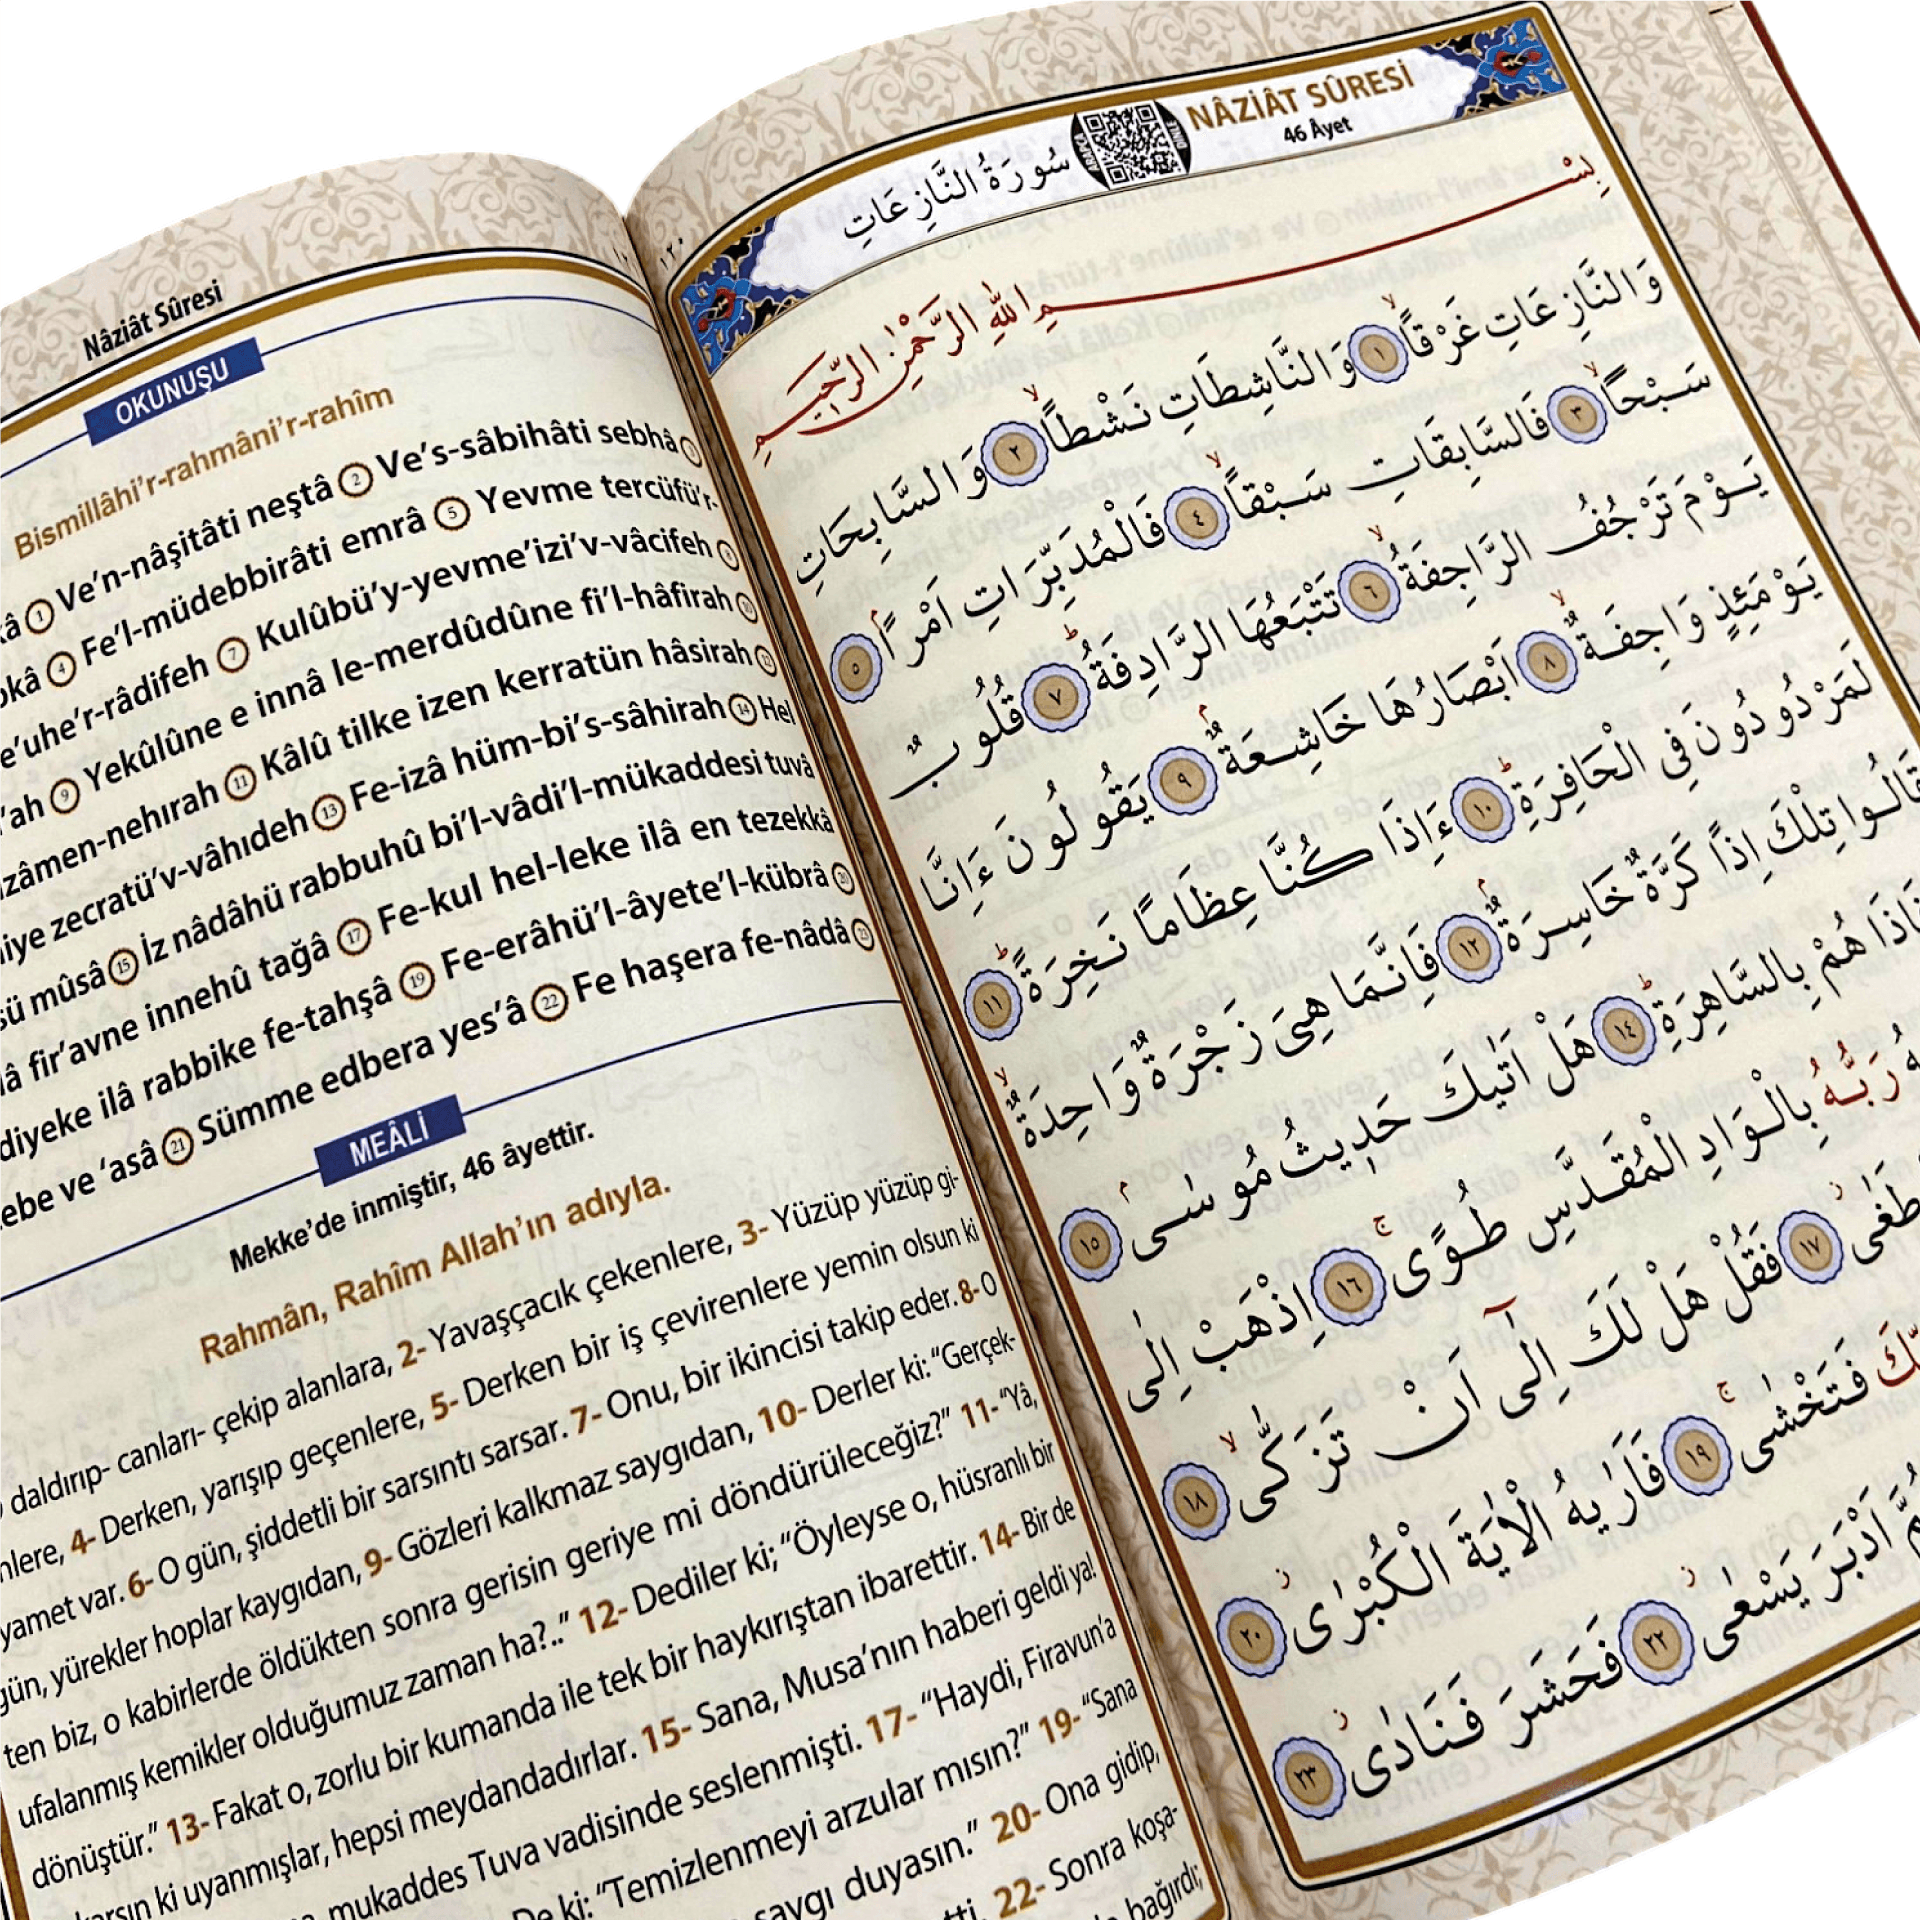 Nâziât Sûresi
OKUNUŞU
Bismillâhi’r-rahmâni’r-rahîm
① Ve’n-nâşitâti neştâ ② Ve’s-sâbihâti sebhâ ③
④ Fe’l-müdebbirâti emrâ ⑤ Yevme tercüfü’r-
râdifeh ⑦ Kulûbü’y-yevme’izi’v-vâcifeh ⑧
⑨ Yekûlûne e innâ le-merdûdûne fi’l-hâfirah ⑩
izâmen-nehırah ⑪ Kâlû tilke izen kerratün hâsirah ⑫
hiye zecratü’v-vâhıdeh ⑬ Fe-izâ hüm-bi’s-sâhirah ⑭ Hel
mûsâ ⑮ İz nâdâhü rabbuhû bi’l-vâdi’l-mükaddesi tuvâ
fir’avne innehû tağâ ⑰ Fe-kul hel-leke ilâ en tezekkâ
ilâ rabbike fe-tahşâ ⑲ Fe-erâhü’l-âyete’l-kübrâ ⑳
ve ‘asâ ㉑ Sümme edbera yes’â ㉒ Fe haşera fe-nâdâ ㉓
MEÂLİ
Mekke’de inmiştir, 46 âyettir.
Rahmân, Rahîm Allah’ın adıyla.
daldırıp- canları- çekip alanlara, 2- Yavaşçacık çekenlere, 3- Yüzüp yüzüp gi-
4- Derken, yarışıp geçenlere, 5- Derken bir iş çevirenlere yemin olsun ki
var. 6- O gün, şiddetli bir sarsıntı sarsar. 7- Onu, bir ikincisi takip eder. 8- O
gün, yürekler hoplar kaygıdan, 9- Gözleri kalkmaz saygıdan, 10- Derler ki: “Gerçek-
ten biz, o kabirlerde öldükten sonra gerisin geriye mi döndürüleceğiz?” 11- “Yâ,
ufalanmış kemikler olduğumuz zaman ha?..” 12- Dediler ki; “Öyleyse o, hüsranlı bir
dönüştür.” 13- Fakat o, zorlu bir kumanda ile tek bir haykırıştan ibarettir. 14- Bir de
ki uyanmışlar, hepsi meydandadırlar. 15- Sana, Musa’nın haberi geldi ya!
mukaddes Tuva vadisinde seslenmişti. 17- “Haydi, Firavun’a
De ki: “Temizlenmeyi arzular mısın?” 19- “Sana
saygı duyasın.” 20- Ona gidip,
22- Sonra koşa-
bağırdı;
١٢٠
سُورَةُ النَّازِعَاتِ
NÂZİÂT SÛRESİ
46 Âyet
بِسْمِ اللّٰهِ الرَّحْمٰنِ الرَّحِيمِ
وَالنَّازِعَاتِ غَرْقًاۙ ١ وَالنَّاشِطَاتِ نَشْطًاۙ ٢ وَالسَّابِحَاتِ
سَبْحًاۙ ٣ فَالسَّابِقَاتِ سَبْقًاۙ ٤ فَالْمُدَبِّرَاتِ اَمْرًاۘ ٥
يَوْمَ تَرْجُفُ الرَّاجِفَةُۙ ٦ تَتْبَعُهَا الرَّادِفَةُۜ ٧ قُلُوبٌ
يَوْمَئِذٍ وَاجِفَةٌۙ ٨ اَبْصَارُهَا خَاشِعَةٌۢ ٩ يَقُولُونَ ءَاِنَّا
لَمَرْدُودُونَ فِي الْحَافِرَةِۜ ١٠ ءَاِذَا كُنَّا عِظَامًا نَخِرَةًۜ ١١
قَالُوا تِلْكَ اِذًا كَرَّةٌ خَاسِرَةٌۢ ١٢ فَاِنَّمَا هِيَ زَجْرَةٌ وَاحِدَةٌۙ
هُمْ بِالسَّاهِرَةِۜ ١٤ هَلْ اَتٰيكَ حَدِيثُ مُوسٰىۢ ١٥
رَبُّهُ بِالْوَادِ الْمُقَدَّسِ طُوًىۚ ١٦ اِذْهَبْ اِلٰى
طَغٰىۘ ١٧ فَقُلْ هَلْ لَكَ اِلٰٓى اَنْ تَزَكّٰىۙ ١٨
فَتَخْشٰىۚ ١٩ فَاَرٰيهُ الْاٰيَةَ الْكُبْرٰىۘ ٢٠
اَدْبَرَ يَسْعٰىۘ ٢٢ فَحَشَرَ فَنَادٰىۘ ٢٣